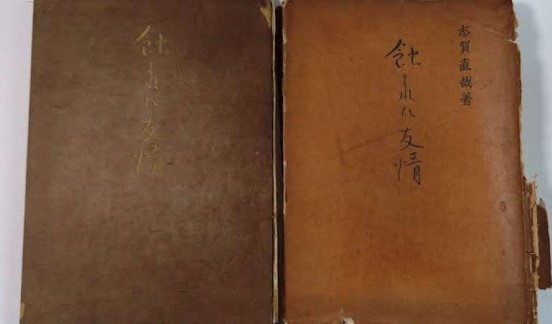 蝕まれた友情
志賀直哉著
蝕まれた友情